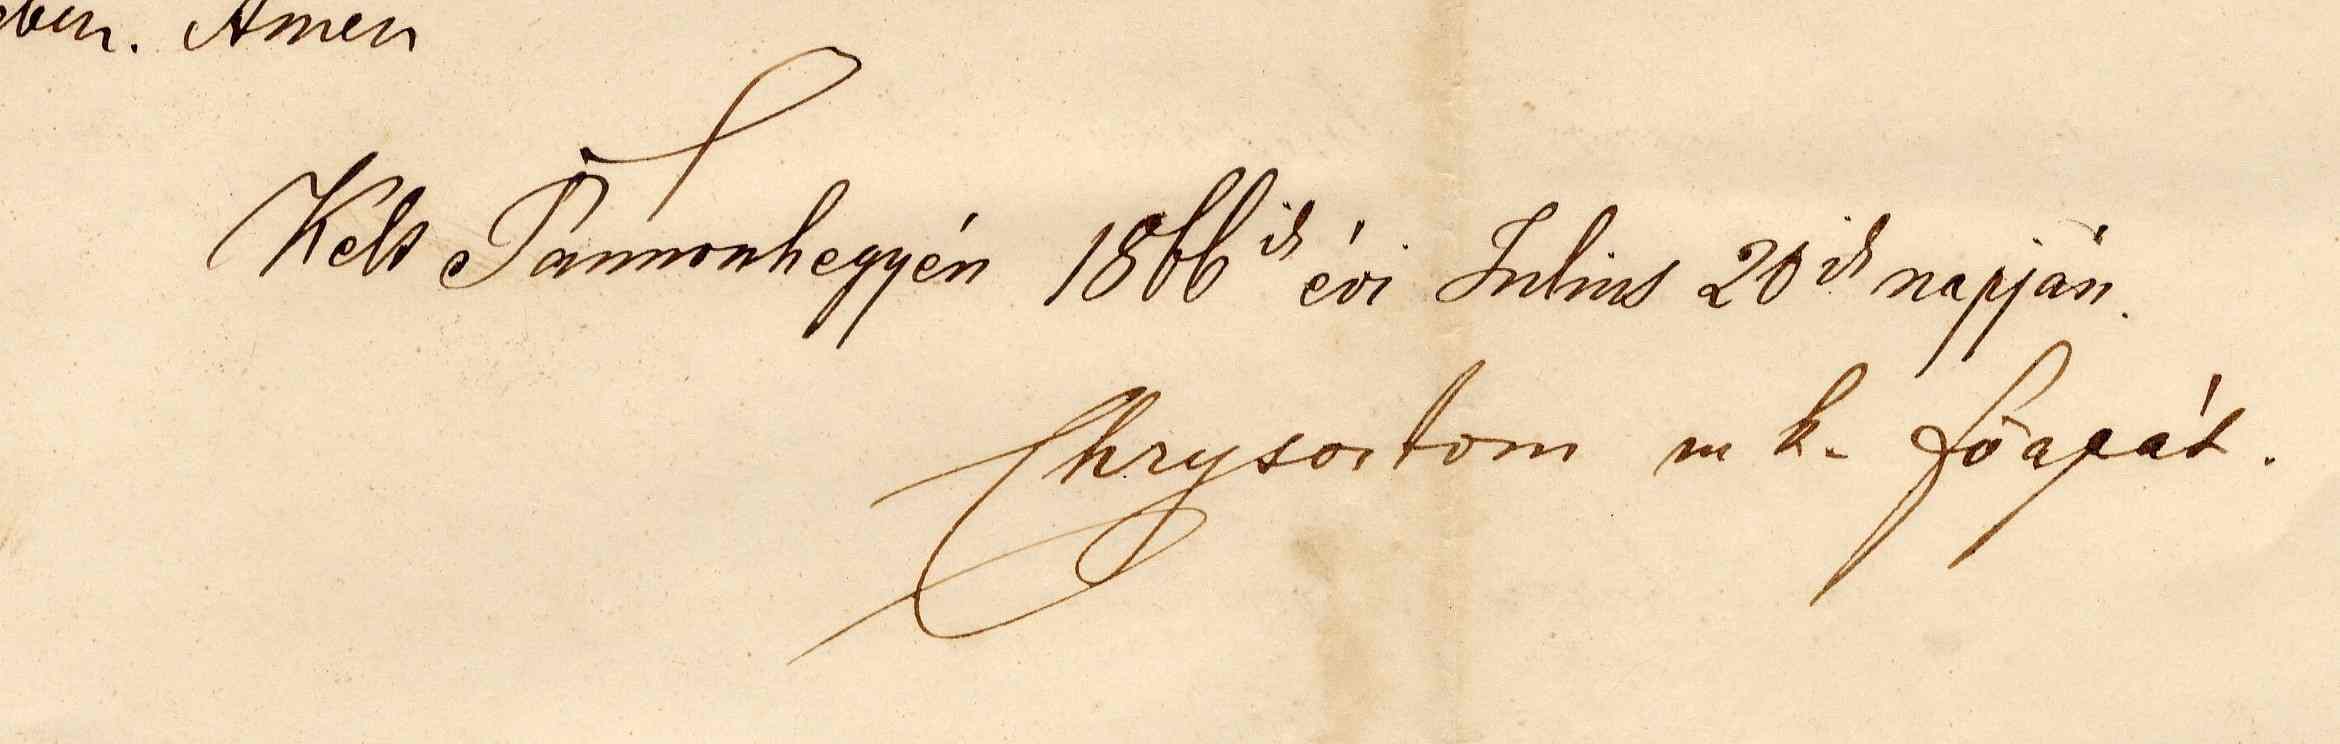 Amen
Kelt Pannonhegyén 1866ik évi Julius 20ik napján.
Chrysostom m k. főapát.